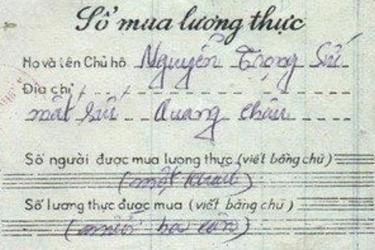 Sổ mua lương thực
Họ và tên Chủ hộ Nguyễn Trọng Sứ
Địa chỉ
Quang châu
Số người được mua lương thực (viết bằng chữ)
(một
Số lương thực được mua (viết bằng chữ)